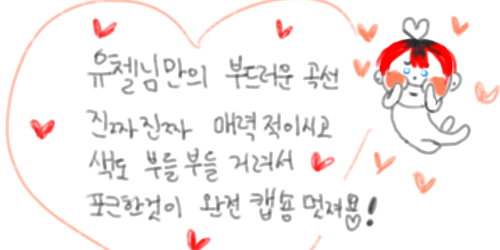 유첼님만의 부드러운 곡선
진짜진짜 매력적이시고
색도 부들부들 거려서
포근한것이 완전 캡숑 멋져욤!